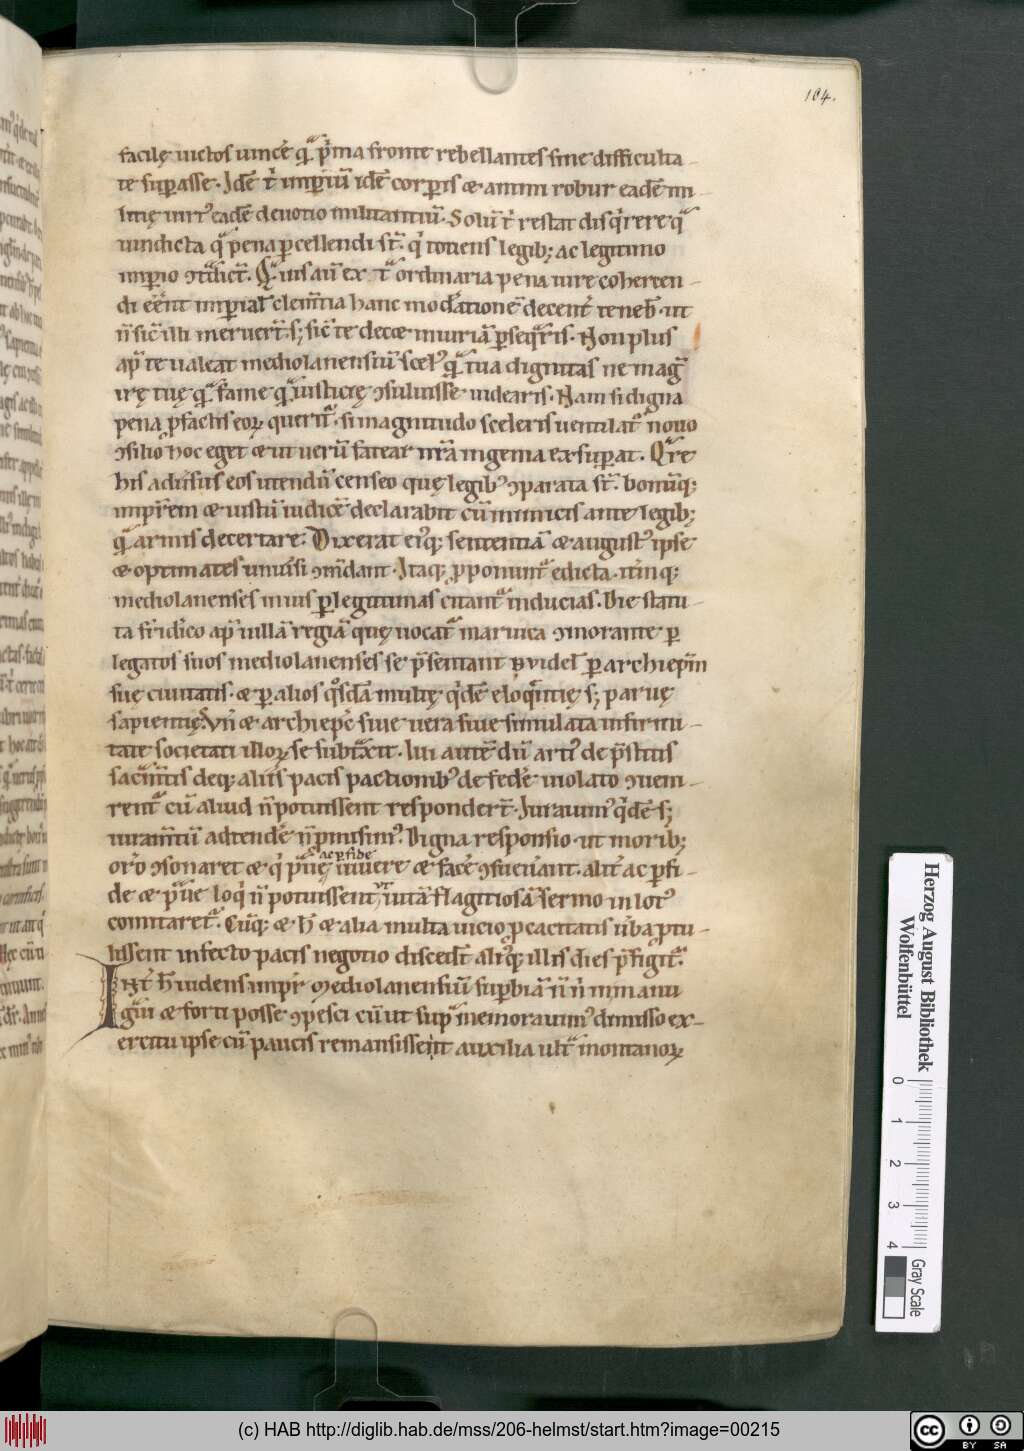 104.
facilę uictos uincẻ qͣ p̄ma fronte rebellantes sine difficulta-
te suꝑasse. Idē ē̓ imꝑiū idē corꝑis & animi robur eadē mi-
litię uirt᷒ eadē deuotio militantiū. Solū ē̓ restat disq̓rere qͣ
uindicta qͣ pena ꝑcellendi st̄. q̓ totiens legib; ac legitimo
imꝑio ꝯtͣdict̄. Quis aū ex tͣ ordinaria pena iure coheren-
di eēnt imꝑial̓ clem̄tia hanc modatione decent̓ teneb̄ ut
n̄ sic̄ illi meruert̄ s; sic̄ te decæ iniuriā ꝑseqͣris. Non plus
ap̄ te ualeat mediolanensiū scel᷒ qͣ tua dignitas ne mag̓
irę tuę qͣ famę qͣ iusticię ꝯsuluisse uidearis. Nam si digna
pena ꝓ factis eoꝝ querit̄. si magnitudo sceleris uentilat᷒ nouo
ꝯsilio hoc eget & ut uerū fatear nr̄a ingenia exsuꝑat. Qͣre
his aduͥsus eos utendū censeo quę legib᷒ ꝯparata st̄. bonūq;
impr̄em & iustū iudicē declarabit cū inimicis ante legib;
qͣ armis decertare. Dixerat ei᷒q; sententiā & august᷒ ipse
& optimates uniuͥsi ꝯm̄dant. Itaq; ꝓponunt᷒ edicta. itīnq;
mediolanenses in ius ꝑ legitimas citant᷒ inducias. Die statu-
ta fridico ap̄ uillā regiā quę uocat᷒ marinca ꝯmorante ꝑ
legatos suos mediolanenses se p̄sentant ꝓuidel̓ ꝑ archiepm̄
suę ciuitatis. & ꝑ alios qͦsdā multę q̓dē eloq̄ntię s; paruę
sapientię. Vn̄ & archiepc̄ siue uera siue simulata infirmi-
tate societati illoꝝ se subtͣxit. Illi autē dū arti᷒ de p̄stitis
sacͣm̄tis deq; aliis pacis pactionib᷒ de fedẻ uiolato ꝯueni-
rent᷒ cū aliud n̄ potuissent respondert̄. Iurauim᷒ q̓dē s;
iuram̄tū adtendẻ n̄ ꝓmisim᷒. Digna responsio. ut morib;
or̄o ꝯsonaret & q̓ p̄uę ac ꝑfide uiuere & facẻ ꝯsueuͥant. alit̓ ac ꝑfi-
de & p̄ue loq̓ n̄ potuissent, uitā flagitiosā sermo in lot᷒
comitaret᷒. Cūq; & h̄ & alia multa uicio ꝓcacitatis ūba ꝓtu-
lissent infecto pacis negotio discedt̄ ali᷒q; illis dies p̄figit᷒.
Int̓ h̄ uidens impr̄ Mediolanensiū suꝑbiā n̄ n̓ in manu
ualida & forti posse ꝯpesci cū ut supͣ memorauim᷒ dimisso ex-
ercitu ipse cū paucis remansisset auxilia ultͣmontanoꝝ
Herzog August Bibliothek
Wolfenbüttel
0 1 2 3 4
Gray Scale
(c) HAB http://diglib.hab.de/mss/206-helmst/start.htm?image=00215
cc BY SA